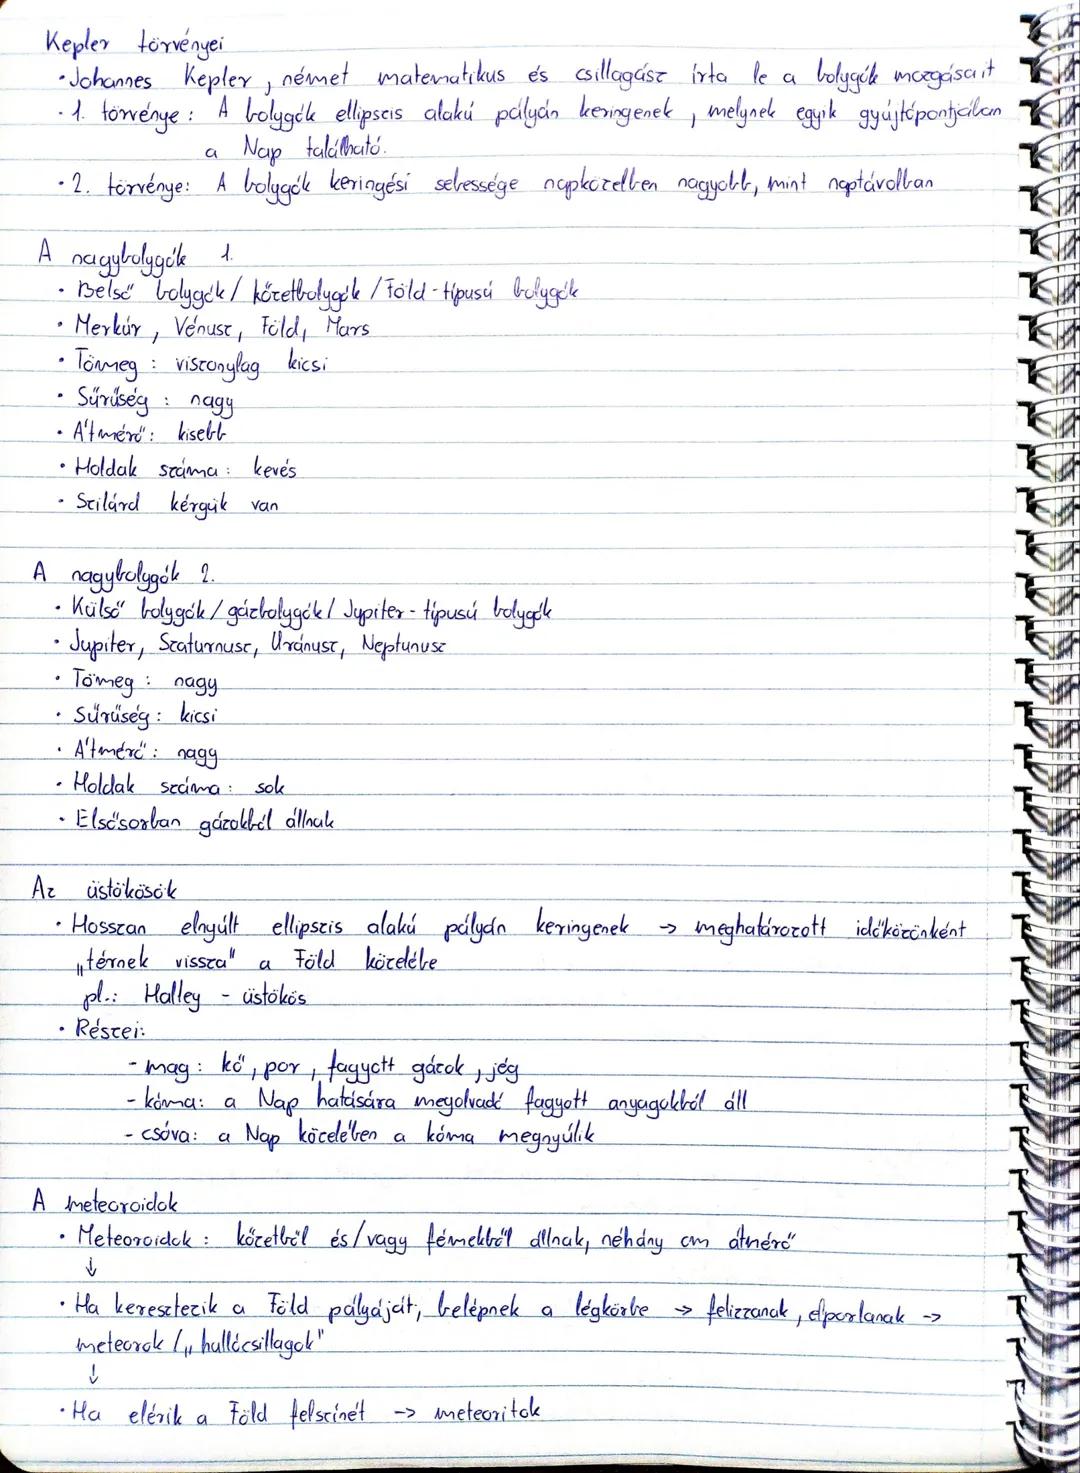 Kepler törvényei
• Johannes Kepler, német matematikus és csillagász írta le a bolygók mozgásait
• 1. törvénye: A bolygók ellipszis alakú pályán keringenek, melynek egyik gyújtópontjában
a Nap található.
• 2. törvénye: A bolygók keringési sebessége napközelben nagyobb, mint naptávolban
A nagybolygók 1.
• Belső bolygók / kőzetbolygók / Föld-típusú bolygók
• Merkúr, Vénusz, Föld, Mars
• Tömeg: viszonylag kicsi
• Sűrűség: nagy
• Átmérő: kisebb
• Holdak száma: kevés
• Szilárd kérgük van
A nagybolygók 2.
• Külső bolygók / gázbolygók / Jupiter-típusú bolygók
• Jupiter, Szaturnusz, Uránusz, Neptunusz
• Tömeg: nagy
• Sűrűség: kicsi
• Átmérő: nagy
• Holdak száma: sok
• Elsősorban gázokból állnak
Az üstökösök
• Hosszan elnyúlt ellipszis alakú pályán keringenek → meghatározott időközönként
„térnek vissza" a Föld közelébe
pl.: Halley - üstökös
• Részei:
- mag: kő, por, fagyott gázok, jég
- kóma: a Nap hatására megolvadó fagyott anyagokból áll
- csóva: a Nap közelében a kóma megnyúlik
A meteoroidok
• Meteoroidok: kőzetből és/vagy fémekből állnak, néhány cm átmérő
↓
• Ha keresztezik a Föld pályáját, belépnek a légkörbe → felizzanak, elporlanak →
meteorok / „hullócsillagok"
↓
• Ha elérik a Föld felszínét → meteoritok